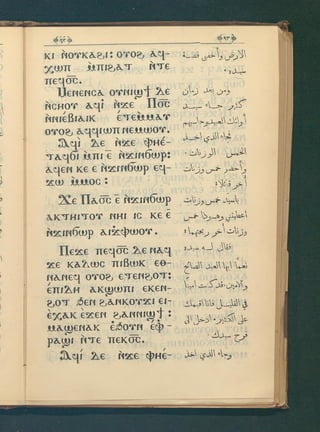 ⲕⲓ ⲛ̀ⲟⲩⲕⲁϩⲓ: ⲟⲩⲟϩ ⲁϥ-
ⲭⲱⲡ ⲙ̀ⲡⲓϩⲁⲧ ⲛ̀ⲧⲉ
ⲡⲉϥϭ̅ⲥ̅.
Ⲙⲉⲛⲉⲛⲥⲁ ⲟⲩⲛⲓϣϯ ⲇⲉ
ⲛ̀ⲥⲏⲟⲩ ⲁϥⲓ̀ ⲛ̀ϫⲉ Ⲡϭ̅ⲥ̅
ⲛ̀ⲛⲓⲉ̀ⲃⲓⲁⲓⲕ ⲉ̀ⲧⲉⲙⲙⲁⲩ
ⲟⲩⲟϩ ⲁϥϥⲓⲱⲡ ⲛⲉⲙⲱⲟⲩ.
Ⲁϥⲓ̀ ⲇⲉ ⲛ̀ϫⲉ ⲫⲏⲉ̀-
ⲧⲁϥϭⲓ ⲙ̀ⲡⲓ ⲉ̅ ⲛ̀ϫⲓⲛϭⲱⲣ:
ⲁϥⲉⲛ ⲕⲉ ⲉ̅ ⲛ̀ϫⲓⲛϭⲱⲣ ⲉϥ-
ϫⲱ ⲙ̀ⲙⲟⲥ:
Ϫⲉ Ⲡⲁϭ̅ⲥ̅ ⲉ̅ ⲛ̀ϫⲓⲛϭⲱⲣ
ⲁⲕⲧⲏⲓⲧⲟⲩ ⲛⲏⲓ ⲓⲥ ⲕⲉ ⲉ̅
ⲛ̀ϫⲓⲛϭⲱⲣ ⲁⲓϫⲫⲱⲟⲩ.
Ⲡⲉϫⲉ ⲡⲉϥϭ̅ⲥ̅ ⲇⲉ ⲛⲁϥ
ϫⲉ ⲕⲁⲗⲱⲥ ⲡⲓⲃⲱⲕ ⲉⲑ-
ⲛⲁⲛⲉϥ ⲟⲩⲟϩ ⲉⲧⲉⲛϩⲟⲧ:
ⲉ̀ⲡⲓⲇⲏ ⲁⲕϣⲱⲡⲓ ⲉⲕⲉⲛ-
ϩⲟⲧ ϧⲉⲛ ϩⲁⲛⲕⲟⲩϫⲓ ⲉⲓ-
ⲉ̀ⲭⲁⲕ ⲉ̀ϫⲉⲛ ϩⲁⲛⲛⲓϣϯ:
ⲙⲁϣⲉⲛⲁⲕ ⲉ̀ϧⲟⲩⲛ ⲉ̀ⲫ-
ⲣⲁϣⲓ ⲛ̀ⲧⲉ ⲡⲉⲕϭ̅ⲥ̅.
Ⲁϥⲓ̀ ⲇⲉ ⲛ̀ϫⲉ ⲫⲏⲉ̀-
الارض وأخفى فضة
سيده.
ومن بعد زمان
كثير جاء سيد
أولئك العبيد وحاسبهم
فجاء الذي اخذ
الخمس الوزنات.
وأحضر خمس وزنات
أخر قائلا:
يا سيد خمس وزنات
أعطيتني وهوذا خمس
وزنات أخر ربحتها.
فقال له سيده
نعما أيها العبد الصالح
والامين. قد كنت امينا
في القليل فانا اقيمك
على الكثير. ادخل الى
فرح سيدك.
وجاء الذي اخذ